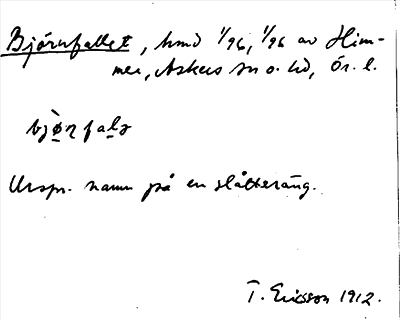 Björnfallet, hmd 1/96, 1/96 av Him-
mer, Askers sn o. hd, Ör. l.
Urspr. namn på en slåtteräng.
T. Ericsson 1912.